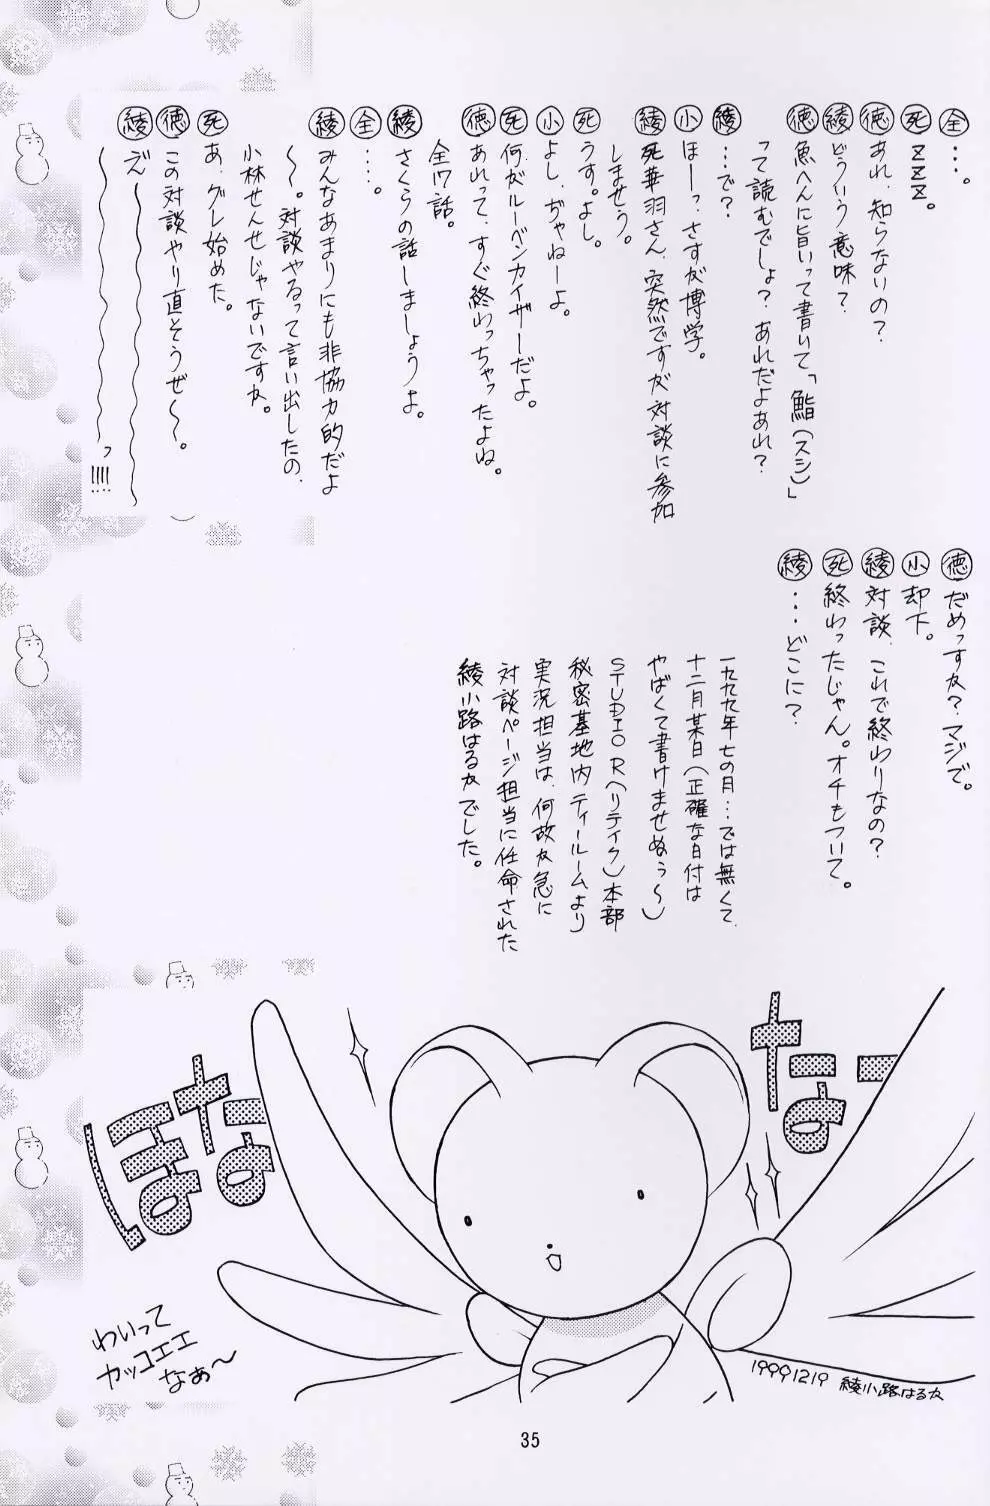 全…。
死ZZZ。
徳あれ、知らないの？
綾どういう意味？
徳魚へんに旨いって書いて「鮨（スシ）」
って読むでしょ？あれだよあれ？
綾…で？
小ほーっ、さすが博学。
綾死華羽さん、突然ですが対談に参加
しませう。
死うす。よし。
小よし、ぢゃねーよ。
死何がルーベンカイザーだよ。
徳あれって、すぐ終わっちゃったよね。
全17話。
綾さくらの話しましょうよ。
全…。
綾みんなあまりにも非協力的だよ
〜。対談やるって言い出したの、
小林せんせじゃないですか。
死あ、グレ始めた。
徳この対談やり直そうぜ〜。
綾
っ!!!!
徳だめっすか？マジで。
小却下。
綾対談、これで終わりなの？
死終わったじゃん。オチもついて。
綾…どこに？
一九九九年七の月…では無くて、
十二月某日（正確な日付は
やばくて書けませぬぅ〜）
STUDIO R（リテイク）本部
秘密基地内ティールームより
実況担当は、何故か急に
対談ページ担当に任命された
綾小路はるかでした。
ほな
なー
わいって
カッコエエ
なぁ〜
19991219 綾小路はるか
35